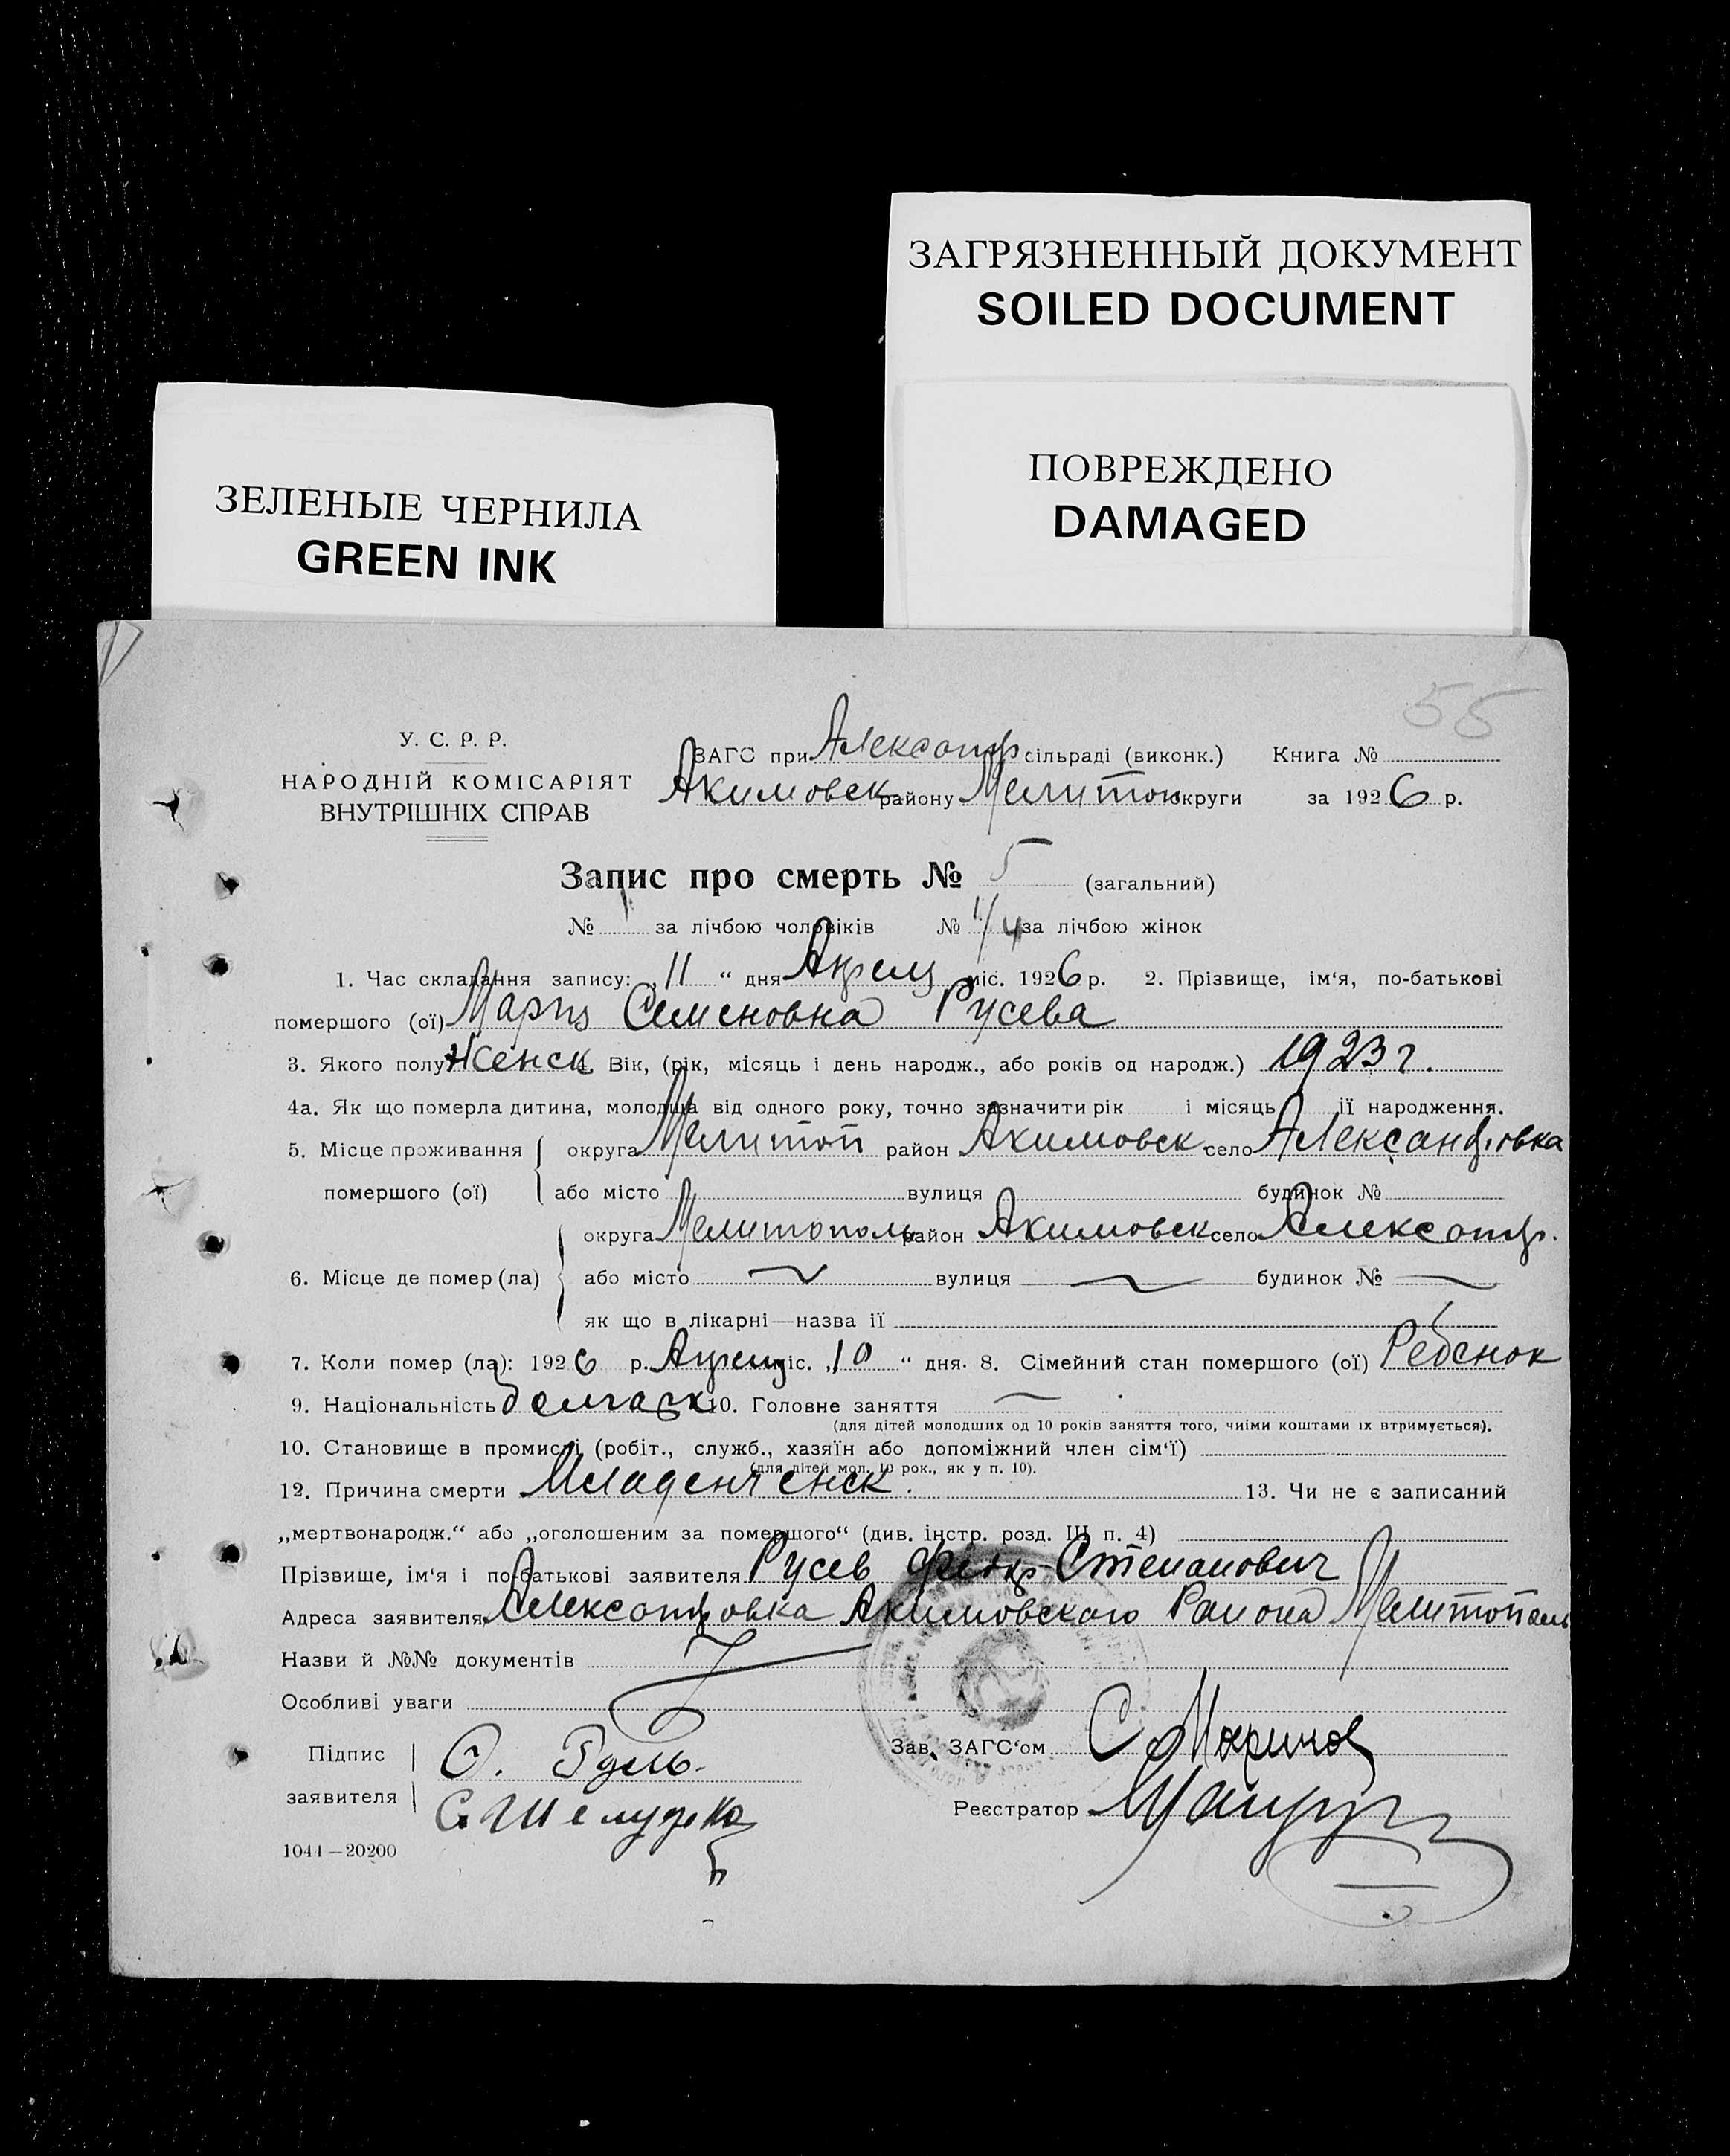 ЗАГРЯЗНЕННЫЙ ДОКУМЕНТ
SOILED DOCUMENT
ПОВРЕЖДЕНО
DAMAGED
ЗЕЛЕНЫЕ ЧЕРНИЛА
GREEN INK
55
У. С. Р. Р.
НАРОДНІЙ КОМІСАРІЯТ
ВНУТРІШНІХ СПРАВ
ЗАГС при Александр сільраді (виконк.) Книга №
Акимовск району Мелитоп округи за 1926 р.
Запис про смерть № 5 (загальний)
№ за лічбою чоловіків № 4 за лічбою жінок
1. Час складання запису: „11“ дня Апреля міс. 1926 р. 2. Прізвище, ім'я, по-батькові
помершого (ої) Мария Семеновна Русева
3. Якого полу Женск 4. Вік, (рік, місяць і день народж., або років од народж.) 1923 г.
4а. Як що померла дитина, молодща від одного року, точно зазначити рік і місяць її народження.
5. Місце проживання округа Мелитоп район Акимовск село Александровка
помершого (ої) або місто вулиця будинок №
округа Мелитополь район Акимовск село Александр.
6. Місце де помер (ла) або місто вулиця будинок №
як що в лікарні—назва її
7. Коли помер (ла): 1926 р. Апреля міс. „10“ дня. 8. Сімейний стан помершого (ої) Ребенок
9. Національність болгарк 10. Головне заняття
(для дітей молодших од 10 років заняття того, чиіми коштами іх втримується).
10. Становище в промислі (робіт., служб., хазяїн або допоміжний член сім'ї)
(для дітей мол. 10 рок., як у п. 10).
12. Причина смерти Младенченск. 13. Чи не є записаний
„мертвонародж.“ або „оголошеним за помершого“ (див. інстр. розд. III п. 4)
Прізвище, ім'я і по-батькові заявителя Русев Степанович
Адреса заявителя Александровка Акимовского Района Мелитополь
Назви й №№ документів
Особливі уваги
Підпис
заявителя
Зав. ЗАГС'ом С Маринов
Реєстратор
1044—20200